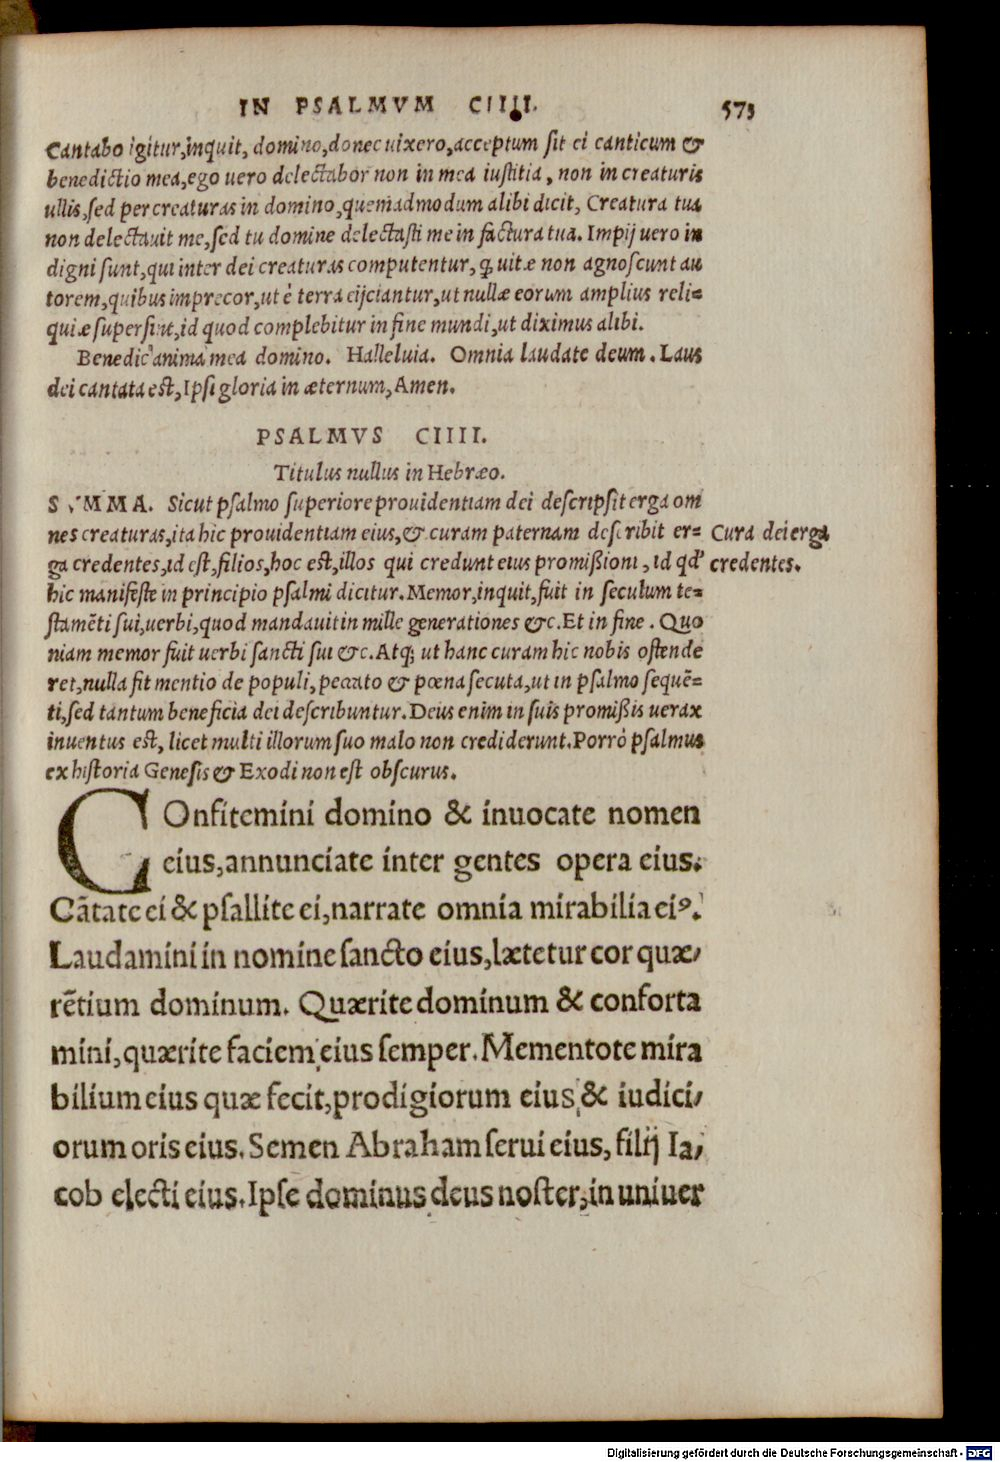 IN PSALMVM CIIII. 573
Cantabo igitur,inquit, domino,donec uixero,acceptum sit ei canticum &
benedictio mea,ego uero delectabor non in mea iustitia, non in creaturis
ullis,sed per creaturas in domino,quemadmodum alibi dicit, Creatura tua
non delectauit me,sed tu domine delectasti me in factura tua. Impij uero in
digni sunt,qui inter dei creaturas computentur, ꝙ uitæ non agnoscunt au
torem,quibus imprecor,ut è terra eijciantur,ut nullæ eorum amplius reli=
quiæ supersint,id quod complebitur in fine mundi,ut diximus alibi.
Benedic anima mea domino. Halleluia. Omnia laudate deum. Laus
dei cantata est,Ipsi gloria in æternum,Amen.
PSALMVS CIIII.
Titulus nullus in Hebræo.
SVMMA. Sicut psalmo superiore prouidentiam dei descripsit erga om
nes creaturas,ita hic prouidentiam eius,& curam paternam describit er=
Cura dei erga
ga credentes,id est,filios,hoc est,illos qui credunt eius promißioni, id qd'
credentes.
hic manifeste in principio psalmi dicitur. Memor,inquit,fuit in seculum te=
stamēti sui,uerbi,quod mandauit in mille generationes &c. Et in fine. Quo
niam memor fuit uerbi sancti sui &c. Atq; ut hanc curam hic nobis ostende
ret,nulla fit mentio de populi,peccato & pœna secuta,ut in psalmo sequē=
ti,sed tantum beneficia dei describuntur. Deus enim in suis promißis uerax
inuentus est, licet multi illorum suo malo non crediderunt. Porrò psalmus
ex historia Genesis & Exodi non est obscurus.
COnfitemini domino & inuocate nomen
eius,annunciate inter gentes opera eius.
Cātate ei & psallite ei,narrate omnia mirabilia eiꝰ.
Laudamini in nomine sancto eius,lætetur cor quæ/
rētium dominum. Quærite dominum & conforta
mini,quærite faciem eius semper. Mementote mira
bilium eius quæ fecit,prodigiorum eius & iudici/
orum oris eius. Semen Abraham serui eius, filij Ia/
cob electi eius. Ipse dominus deus noster,in uniuer
Digitalisierung gefördert durch die Deutsche Forschungsgemeinschaft - DFG